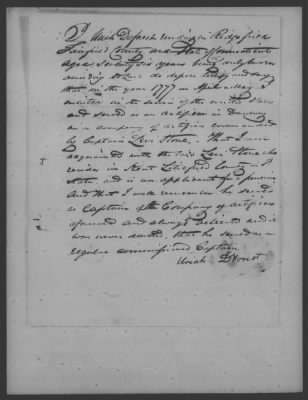 I Uriah Deforest residing in Ridgefield
Fairfield County and State of Connecticut
aged Seventy six years being duly sworn
according to Law do depose testify and say
that in the year 1777 in April or May I
enlisted in the service of the united States
and served as an artificer in Danbury
in a company of artificers commanded
by Captain Levi Stone. That I am
acquainted with the said Levi Stone who
resides in Kent Litchfield County
State, and is an applicant for a pension
And that I well remember he served
as Captain of the Company of artificers
aforesaid and always believed and it
was never doubted that he served as a
regular commissioned Captain
Uriah DForest